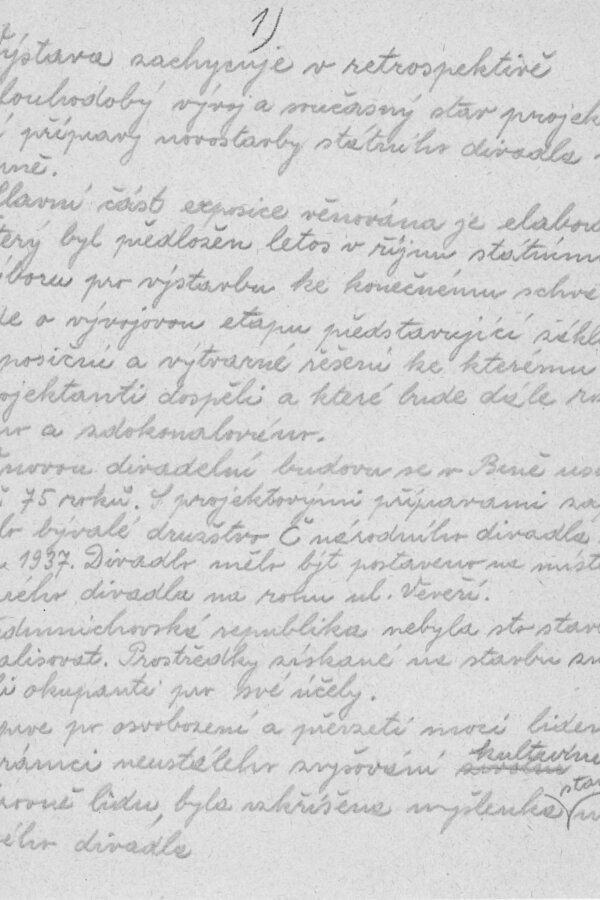 1)
ýstava zachycuje v retrospektivě
louhodobý vývoj a současný stav projek
í přípravy novostavby státního divadla v
rně.
lavní část exposice věnována je elabor
terý byl předložen letos v říjnu státnímu
ýboru pro výstavbu ke konečnému schvá
de o vývojovou etapu představující zákl
posiční a výtvarné řešení ke kterému
ojektanti dospěli a které bude dále ro
no a zdokonalováno.
novou divadelní budovu se v Brně usi
ž 75 roků. S projektovými přípravami za
lo bývalé družstvo Č národního divadla
1937. Divadlo mělo být postaveno na míst
rého divadla na rohu ul. Veveří.
ředmnichovská republika nebyla sto stav
alisovat. Prostředky získané na stavbu
li okupanti pro své účely.
prve po osvobození a převzetí moci lidem
rámci neustálého zvyšování kulturní
rovně lidu, byla vzkříšena myšlenka
ého divadla